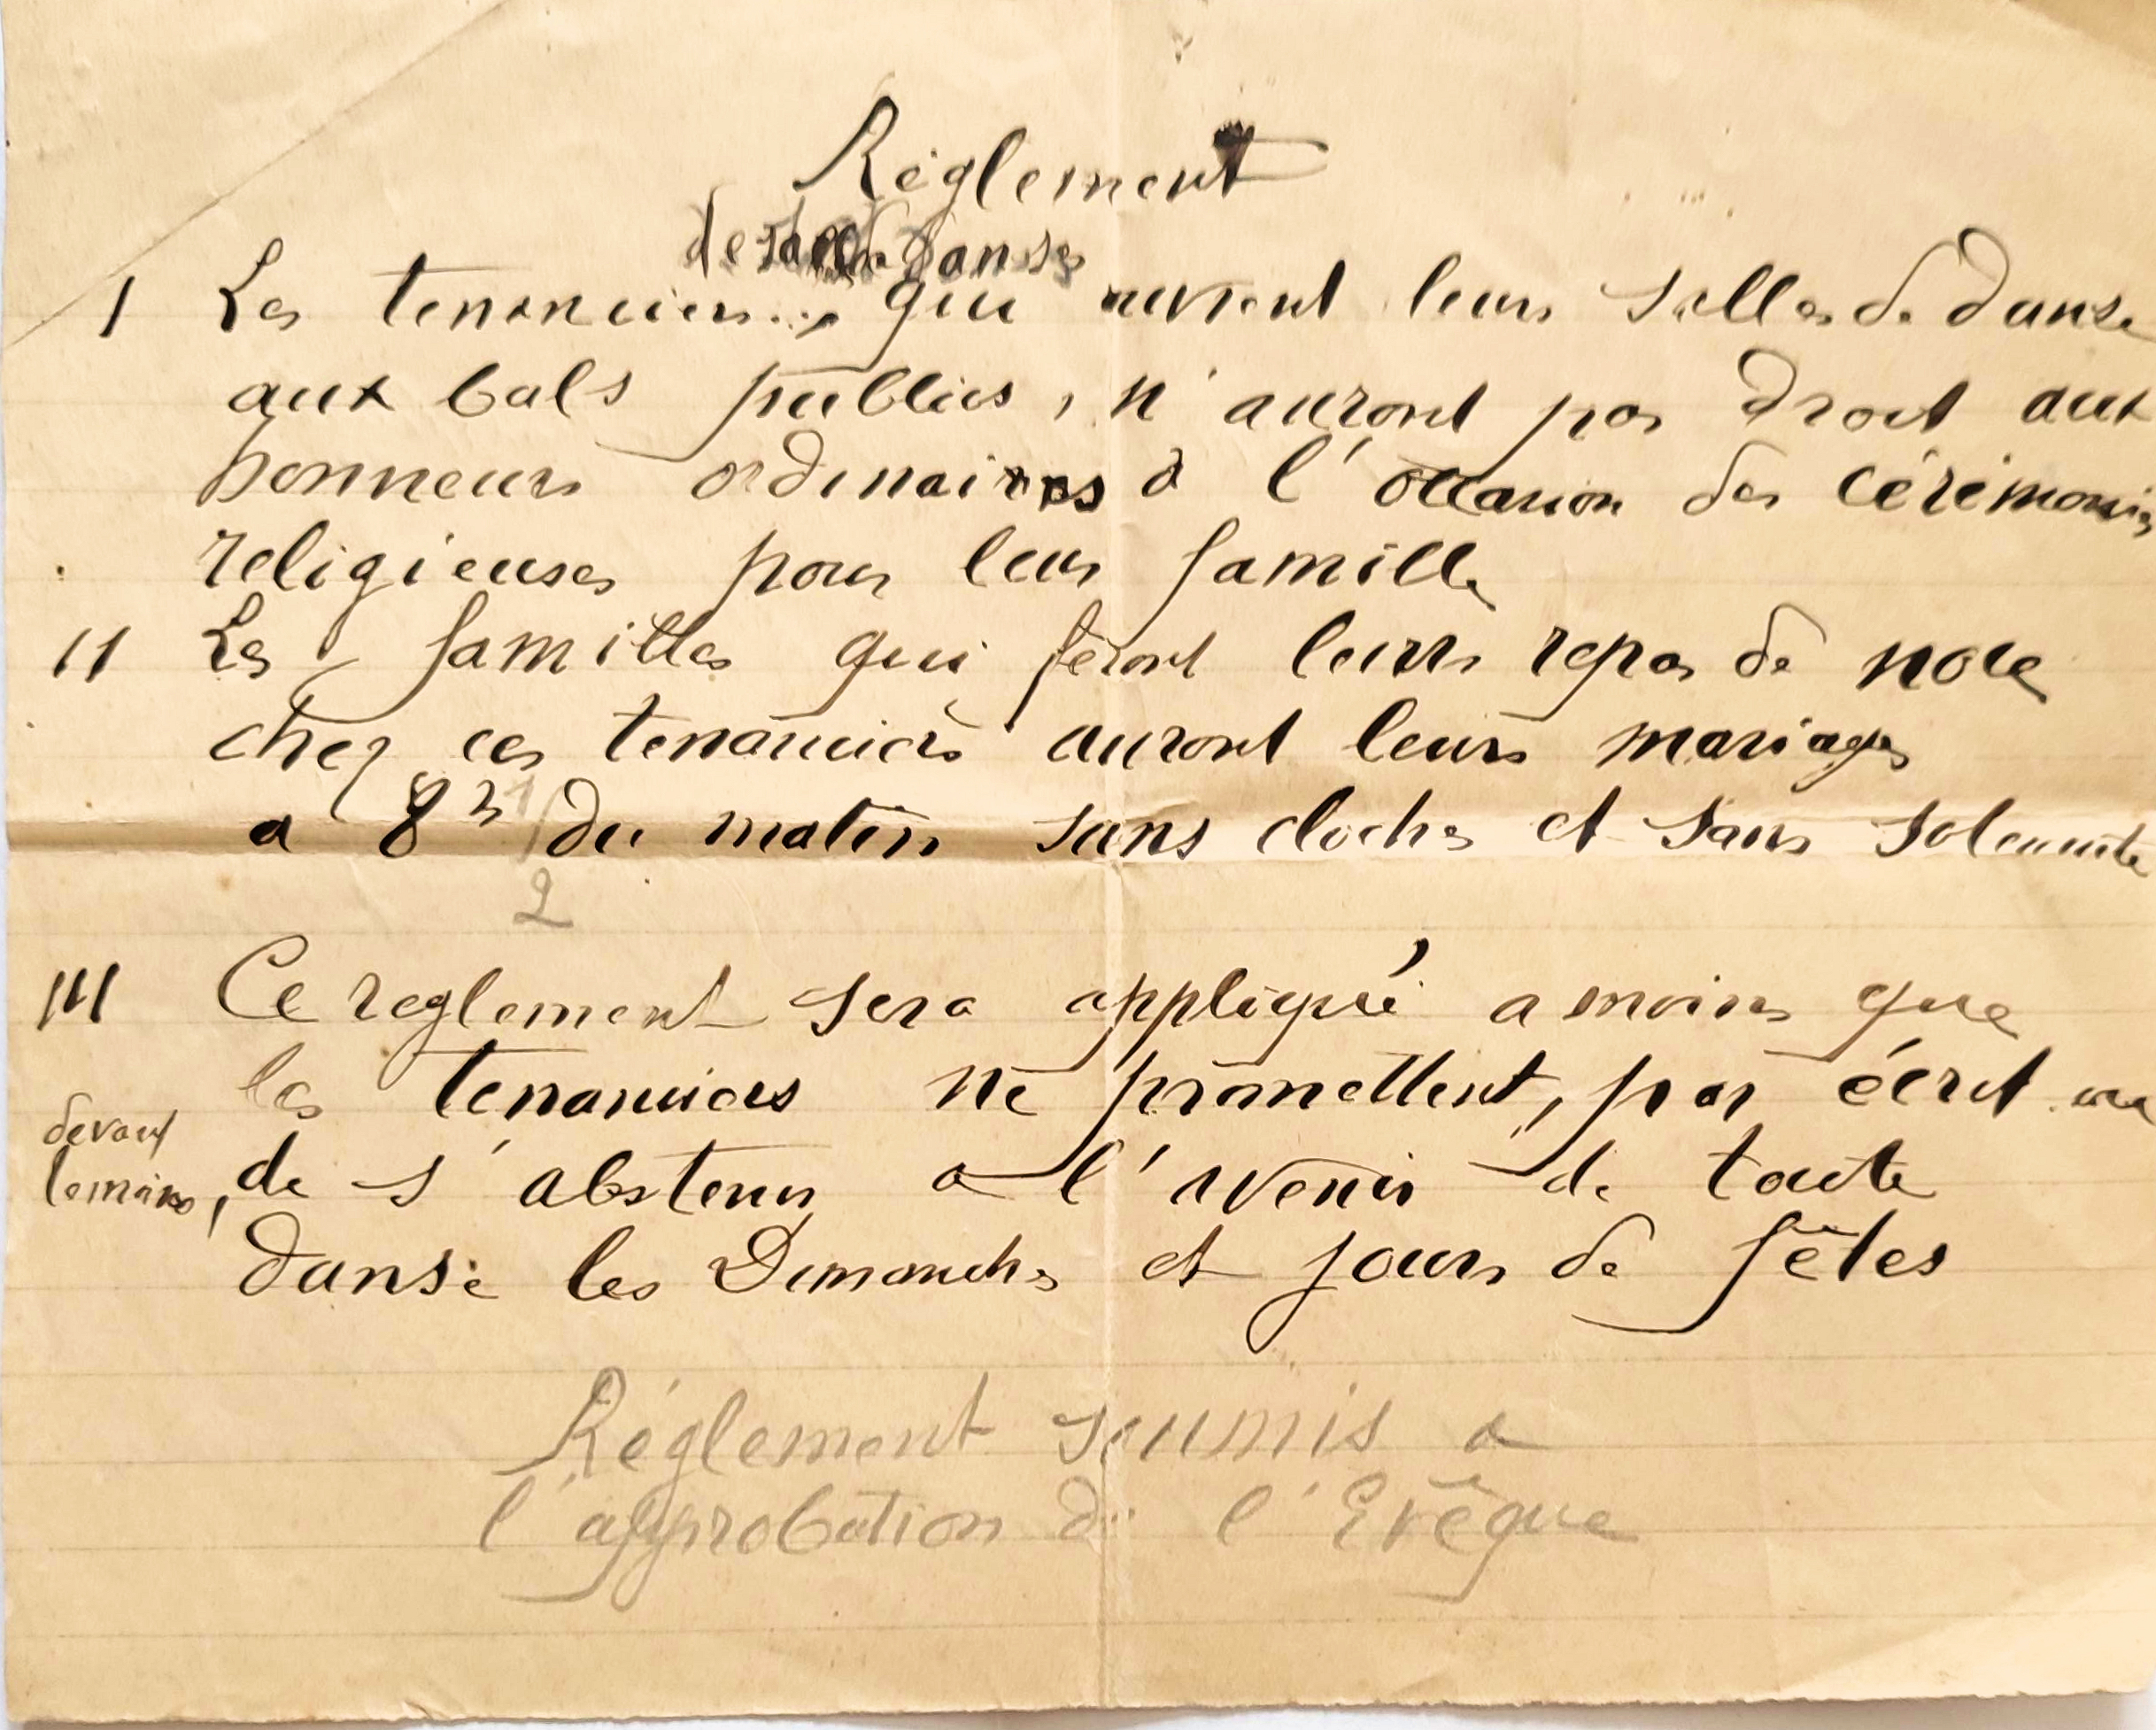 Réglement
de danse
I Les tenanciers qui ouvrent leurs salles de danse
aux bals publics, n'auront pas droit aux
honneurs ordinaires à l'occasion des cérémonies
religieuses pour leur famille
II Les familles qui feront leurs repas de noce
chez ces tenanciers auront leurs mariages
a 8h 1/2 du matin sans cloches et sans solennité
III Ce reglement sera appliqué a moins que
les tenanciers ne promettent, par écrit
devant
de s'abstenir a l'avenir de toute
temoins,
danse les Dimanches et jours de fêtes
Réglement soumis a
l'approbation de l'Evêque